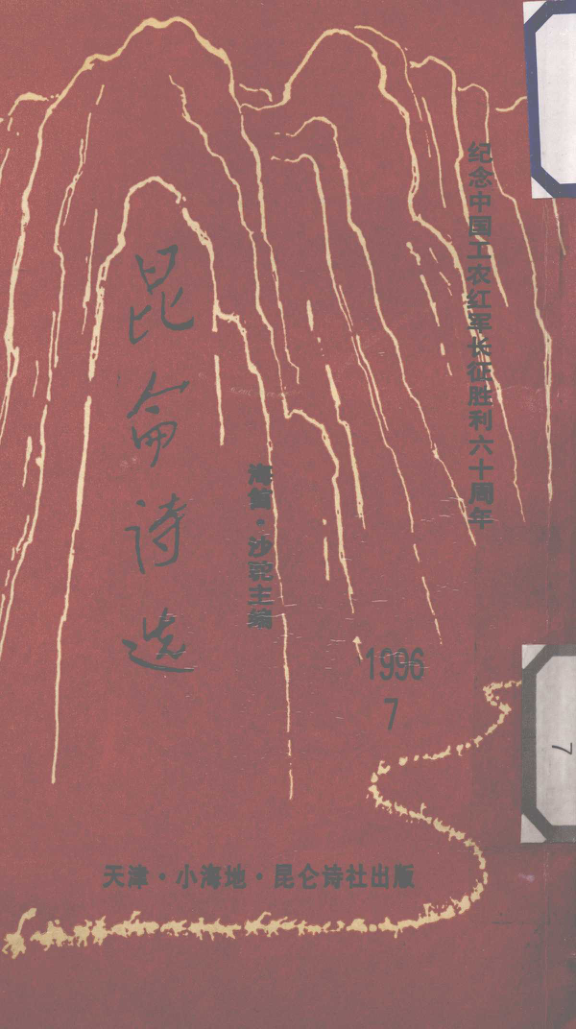 纪念中国工农红军长征胜利六十周年
昆仑诗选
海笛·沙驼主编
1996
7
天津·小海地·昆仑诗社出版
7